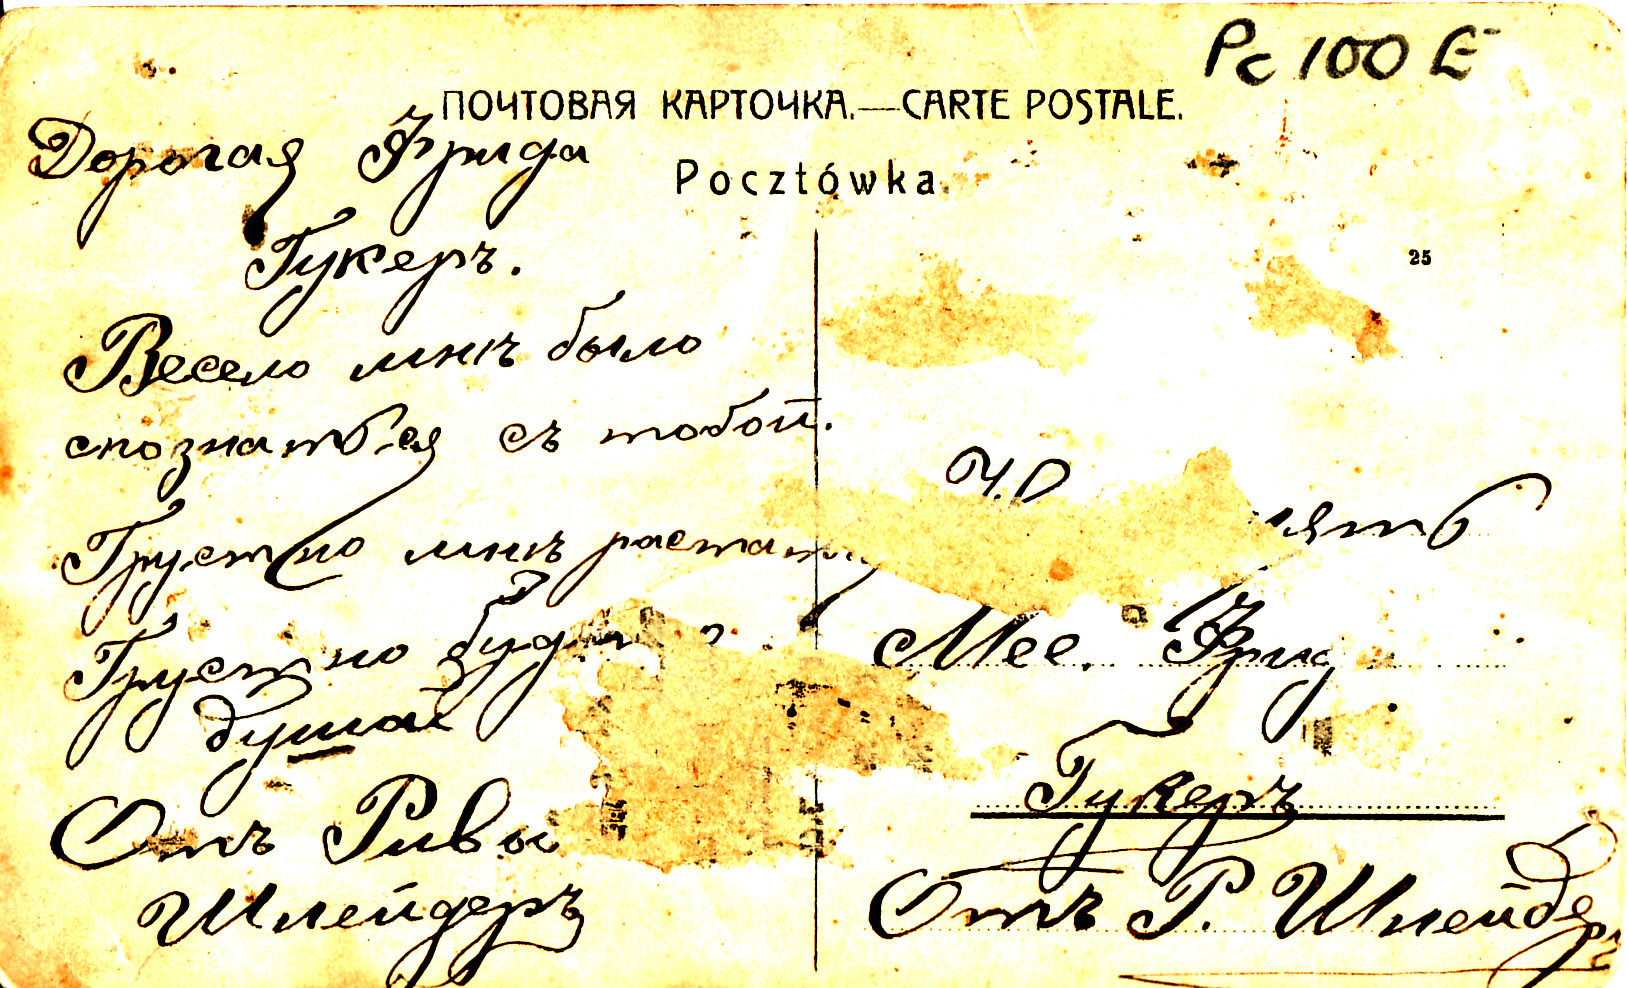 Рс 100 Е
ПОЧТОВАЯ КАРТОЧКА.—CARTE POSTALE.
Pocztówka.
25
Дорогая Фрида
Гукеръ.
Весело мнѣ было
спознаться съ тобой.
Грустно мнѣ
Грустно
душай
Отъ Ривы
Шлейдеръ
Мес.
Гукеръ
Отъ Р. Шлейдеръ